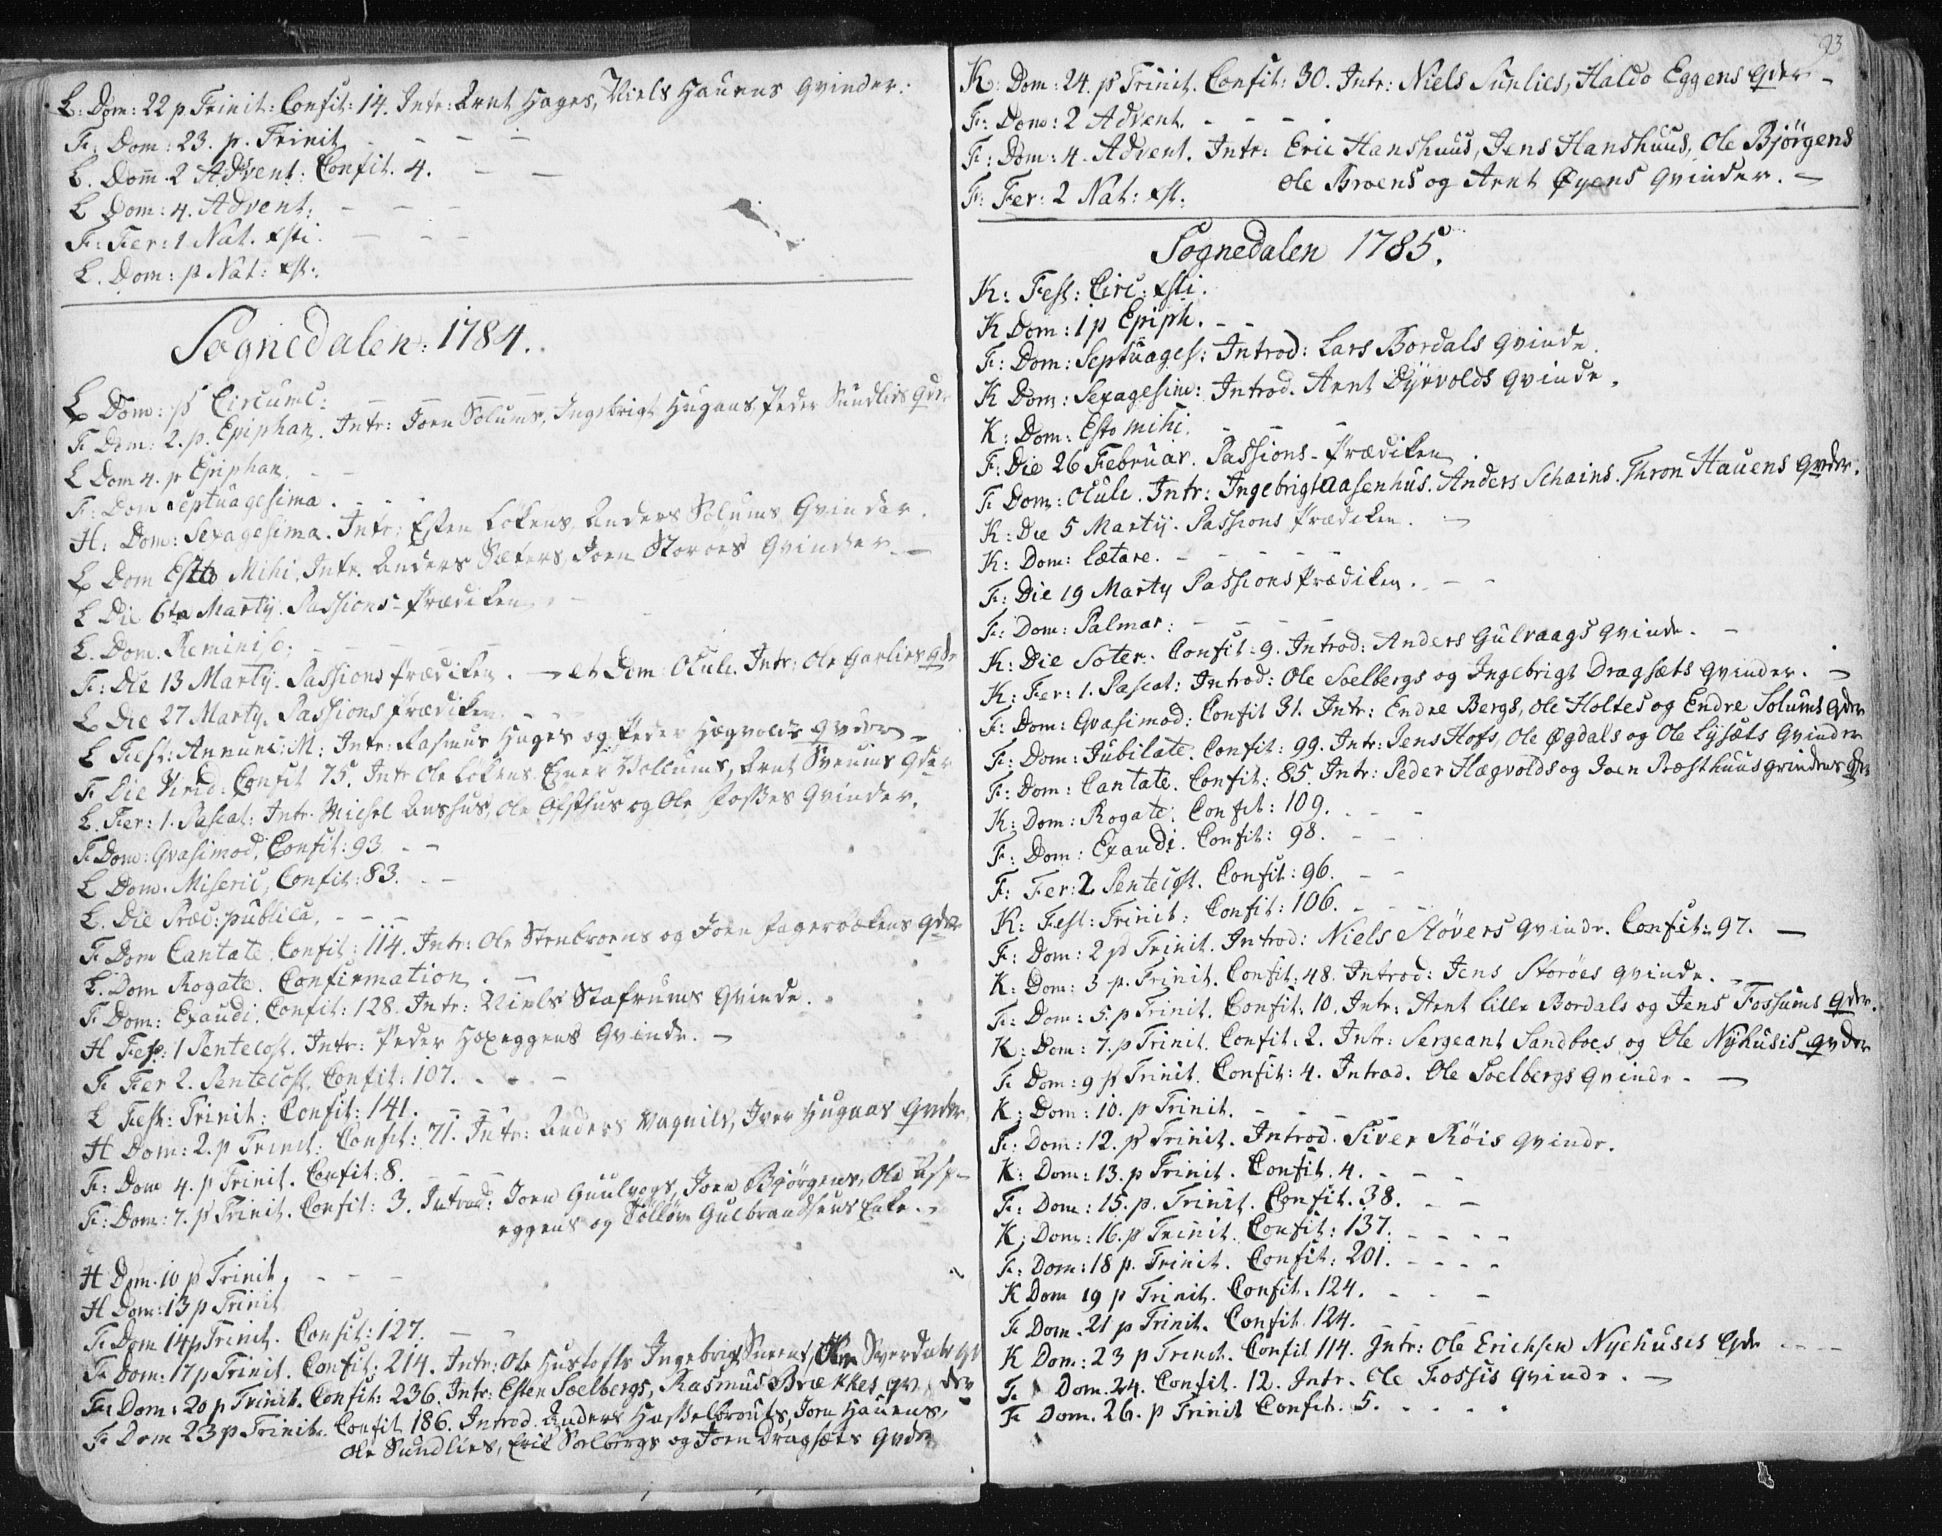 L: Dom: 22 p Trinit: Confit: 14. Intr: Arnt Hages, Niels Hauens Qvinder.
F: Dom: 23. p. Trinit. - - - -
L. Dom 2 Advent: Confit. 4. - -
L Dom: 4. Advent: - - -
F: Fer: 1 Nat. Xsti. - - -
L. Dom: p Nat: Xst:
Sognedalen: 1784.
L Dom: p Circumc:
F Dom: 2. p. Epiphan. Intr: Joen Solums, Ingebrigt Hugaas Peder Sundlies Qder
L Dom 4. p Epiphan. - -
F: Dom Septuagesima. - - - -
H: Dom: Sexagesima. Intr: Esten Løkens Anders Solums Qvinder.
L Dom Esto Mihi. Intr. Anders Sæters, Joen Storøes Qvinder. -
L Die 6ta Martij. Passions-Prædiken. -
L. Dom. Reminisc: - - - -
F: Die 13 Martij. Passions Prædiken. - et Dom: Oculi. Intr: Ole Garlies Qde
L Die 27 Martij. Passions Prædiken. -
L Fest: Annunc: M: Intr: Rasmus Hages og Peder Hægvolds Qvder -
F Die Virid: Confit 75. Intr Ole Løkens Ejner Vollums, Arnt Sveums Qder
L. Fer: 1. Pascat: Intr. Michel Aashus, Ole Hos og Ole Fosses Qvinder.
F Dom: Qvasimod. Confit: 93 - -
L Dom. Miseric, Confit: 83. - -
L. Die Præc: publica. - - -
F Dom Cantate. Confit: 114. Intr: Ole Stenbroens og Joen Fagerbækens Qder
L. Dom Rogate. Confirmation. -
F Dom: Exaudi. Confit: 128. Intr: Niels Stafrums Qvinde.
H Fest: 1 Pentecost. Intr: Peder Hoxeggens Qvinde. -
F Fer 2. Pentecost. Confit: 107. - - -
L Fest: Trinit: Confit: 141. - - -
H Dom: 2. p Trinit: Confit: 71. Intr: Anders Vagnild, Iver Hugaas Qvder
F: Dom 4. p Trinit. Confit: 8. - -
F: Dom: 7. p Trinit. Confit: 3. Introd: Joen Guulvogs, Joen Bjørgens, Ole Asp-
eggens og Tolløv Gulbrandsens Enke. -
H Dom. 10 p Trinit. - - -
H Dom: 13 p Trinit
F Dom 14 p Trinit. Confit: 127. - -
F: Dom: 17 p Trinit. Confit: 214. Intr: Ole Hustofts Ingebrigt Sneens, Ole Sverdals Qv
F: Dom: 20 p Trinit. Confit: 236. Intr: Esten Soelbergs, Rasmus Brækkes Qvder
F Dom 23 p Trinit. Confit 186. Introd. Anders Hasselbrouts, Joen Hauens,
Ole Sundlies, Eric Solbergs og Joen Dragsæts Qvder
93
K: Dom: 24. p Trinit. Confit: 30. Intr: Niels Sunlies, Haldo Eggens Qder -
F: Dom: 2 Advent. - - - -
F: Dom: 4. Advent. Intr: Eric Hanshuus, Jens Hanshuus, Ole Bjørgens
F: Fer: 2 Nat: Xst. Ole Broens og Arnt Øyens Qvinder. -
Sognedalen 1785.
K: Fest: Circ: Xsti.
K Dom: 1 p Epiph. - -
F: Dom: Septuages: Introd: Lars Bordals Qvinde.
K Dom: Sexagesim: Introd. Arnt Dyrvolds Qvinde.
K: Dom: Esto mihi. - - -
F: Die 26 Februar. Passions-Prædiken.
F Dom: Oculi. Intr: Ingebrigt Aasenhus. Anders Schains. Thron Hauens Qvder.
K: Die 5 Martij. Passions Prædiken. -
K: Dom: Lætare. - - - - -
F: Die 19 Marty Passions Prædiken. - -
F: Dom: Palmar: - - - -
K: Die Soter. Confit: 9. Introd: Anders Gulvaags Qvinde. -
K: Fer: 1. Pascat: Introd: Ole Soelbergs og Ingebrigt Dragsæts Qvinder. -
F: Dom: Qvasimod: Confit 31. Intr: Endre Bergs, Ole Holtes og Endre Solums Qder
F: Dom: Jubilate. Confit: 99. Intr: Jens Hofs, Ole Øgdals og Ole Lysæts Qvinder
F: Dom: Cantate. Confit: 85 Intr: Peder Hægvolds og Joen Præsthuus Qvinders
K: Dom: Rogate: Confit: 109. - - -
F: Dom: Exaudi. Confit: 98. - -
F: Fer: 2 Pentecost. Confit: 96. - -
K: Fest: Trinit: Confit: 106. - - -
F: Dom: 2 p Trinit. Introd: Niels Støvers Qvinde. Confit: 97. -
K: Dom: 3 p. Trinit. Confit: 48. Introd: Jens Storøes Qvinde. -
F: Dom: 5. p Trinit. Confit: 10. Intr: Arnt Lille Bordals og Jens Fossums Qder.
K: Dom: 7. p Trinit. Confit: 2. Intr: Sergeant Sandboes og Ole Nyhusis Qvder
F Dom: 9 p Trinit. Confit: 4. Introd. Ole Soelbergs Qvinde. -
K: Dom: 10. p Trinit. - - - -
F: Dom: 12. p Trinit. Introd. Siver Røis Qvinde.
K: Dom: 13. p Trinit. Confit. 4. - -
F: Dom: 15. p. Trinit. Confit. 38. - -
K: Dom: 16. p Trinit. Confit: 137. - - - -
F: Dom: 18 p. Trinit. Confit: 201. - - - -
K Dom 19 p Trinit. Confit. 124. - - -
F Dom. 21 p Trinit. Confit 124.
K Dom: 23 p Trinit. Confit 114. Intr: Ole Erichsen Nyehuses Qde - - -
F Dom. 24. Confit. 12. Intr. Ole Fossis Qvinde. -
F Dom. 26. p Trinit Confit. 5. - - - -